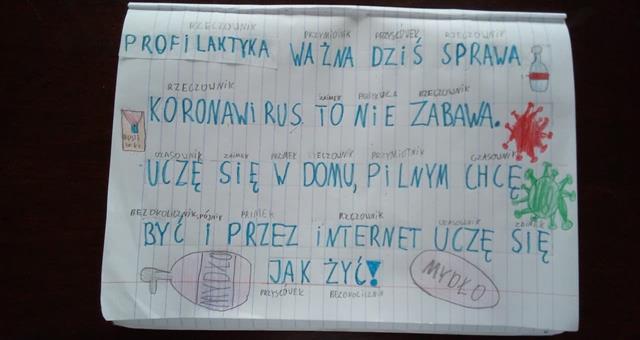 RZECZOWNIK PRZYMIOTNIK PRZYSŁÓWEK RZECZOWNIK
PROFILAKTYKA WAŻNA DZIŚ SPRAWA
RZECZOWNIK ZAIMEK PARTYKUŁA RZECZOWNIK
KORONAWIRUS TO NIE ZABAWA.
CZASOWNIK ZAIMEK PRZYIMEK RZECZOWNIK PRZYMIOTNIK CZASOWNIK
UCZĘ SIĘ W DOMU, PILNYM CHCĘ
BEZOKOLICZNIK SPÓJNIK PRZYIMEK RZECZOWNIK CZASOWNIK ZAIMEK
BYĆ I PRZEZ INTERNET UCZĘ SIĘ
JAK ŻYĆ!
PRZYSŁÓWEK BEZOKOLICZNIK
MYDŁO
MYDŁO